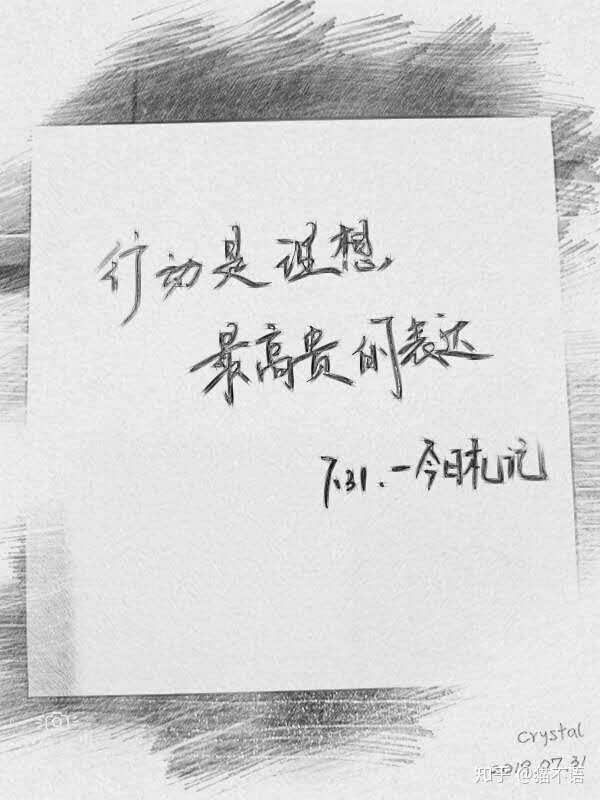 行动是理想,
最高贵的表达
7.31.一今日札记
crystal
2019.07.31
知乎 @猫不语